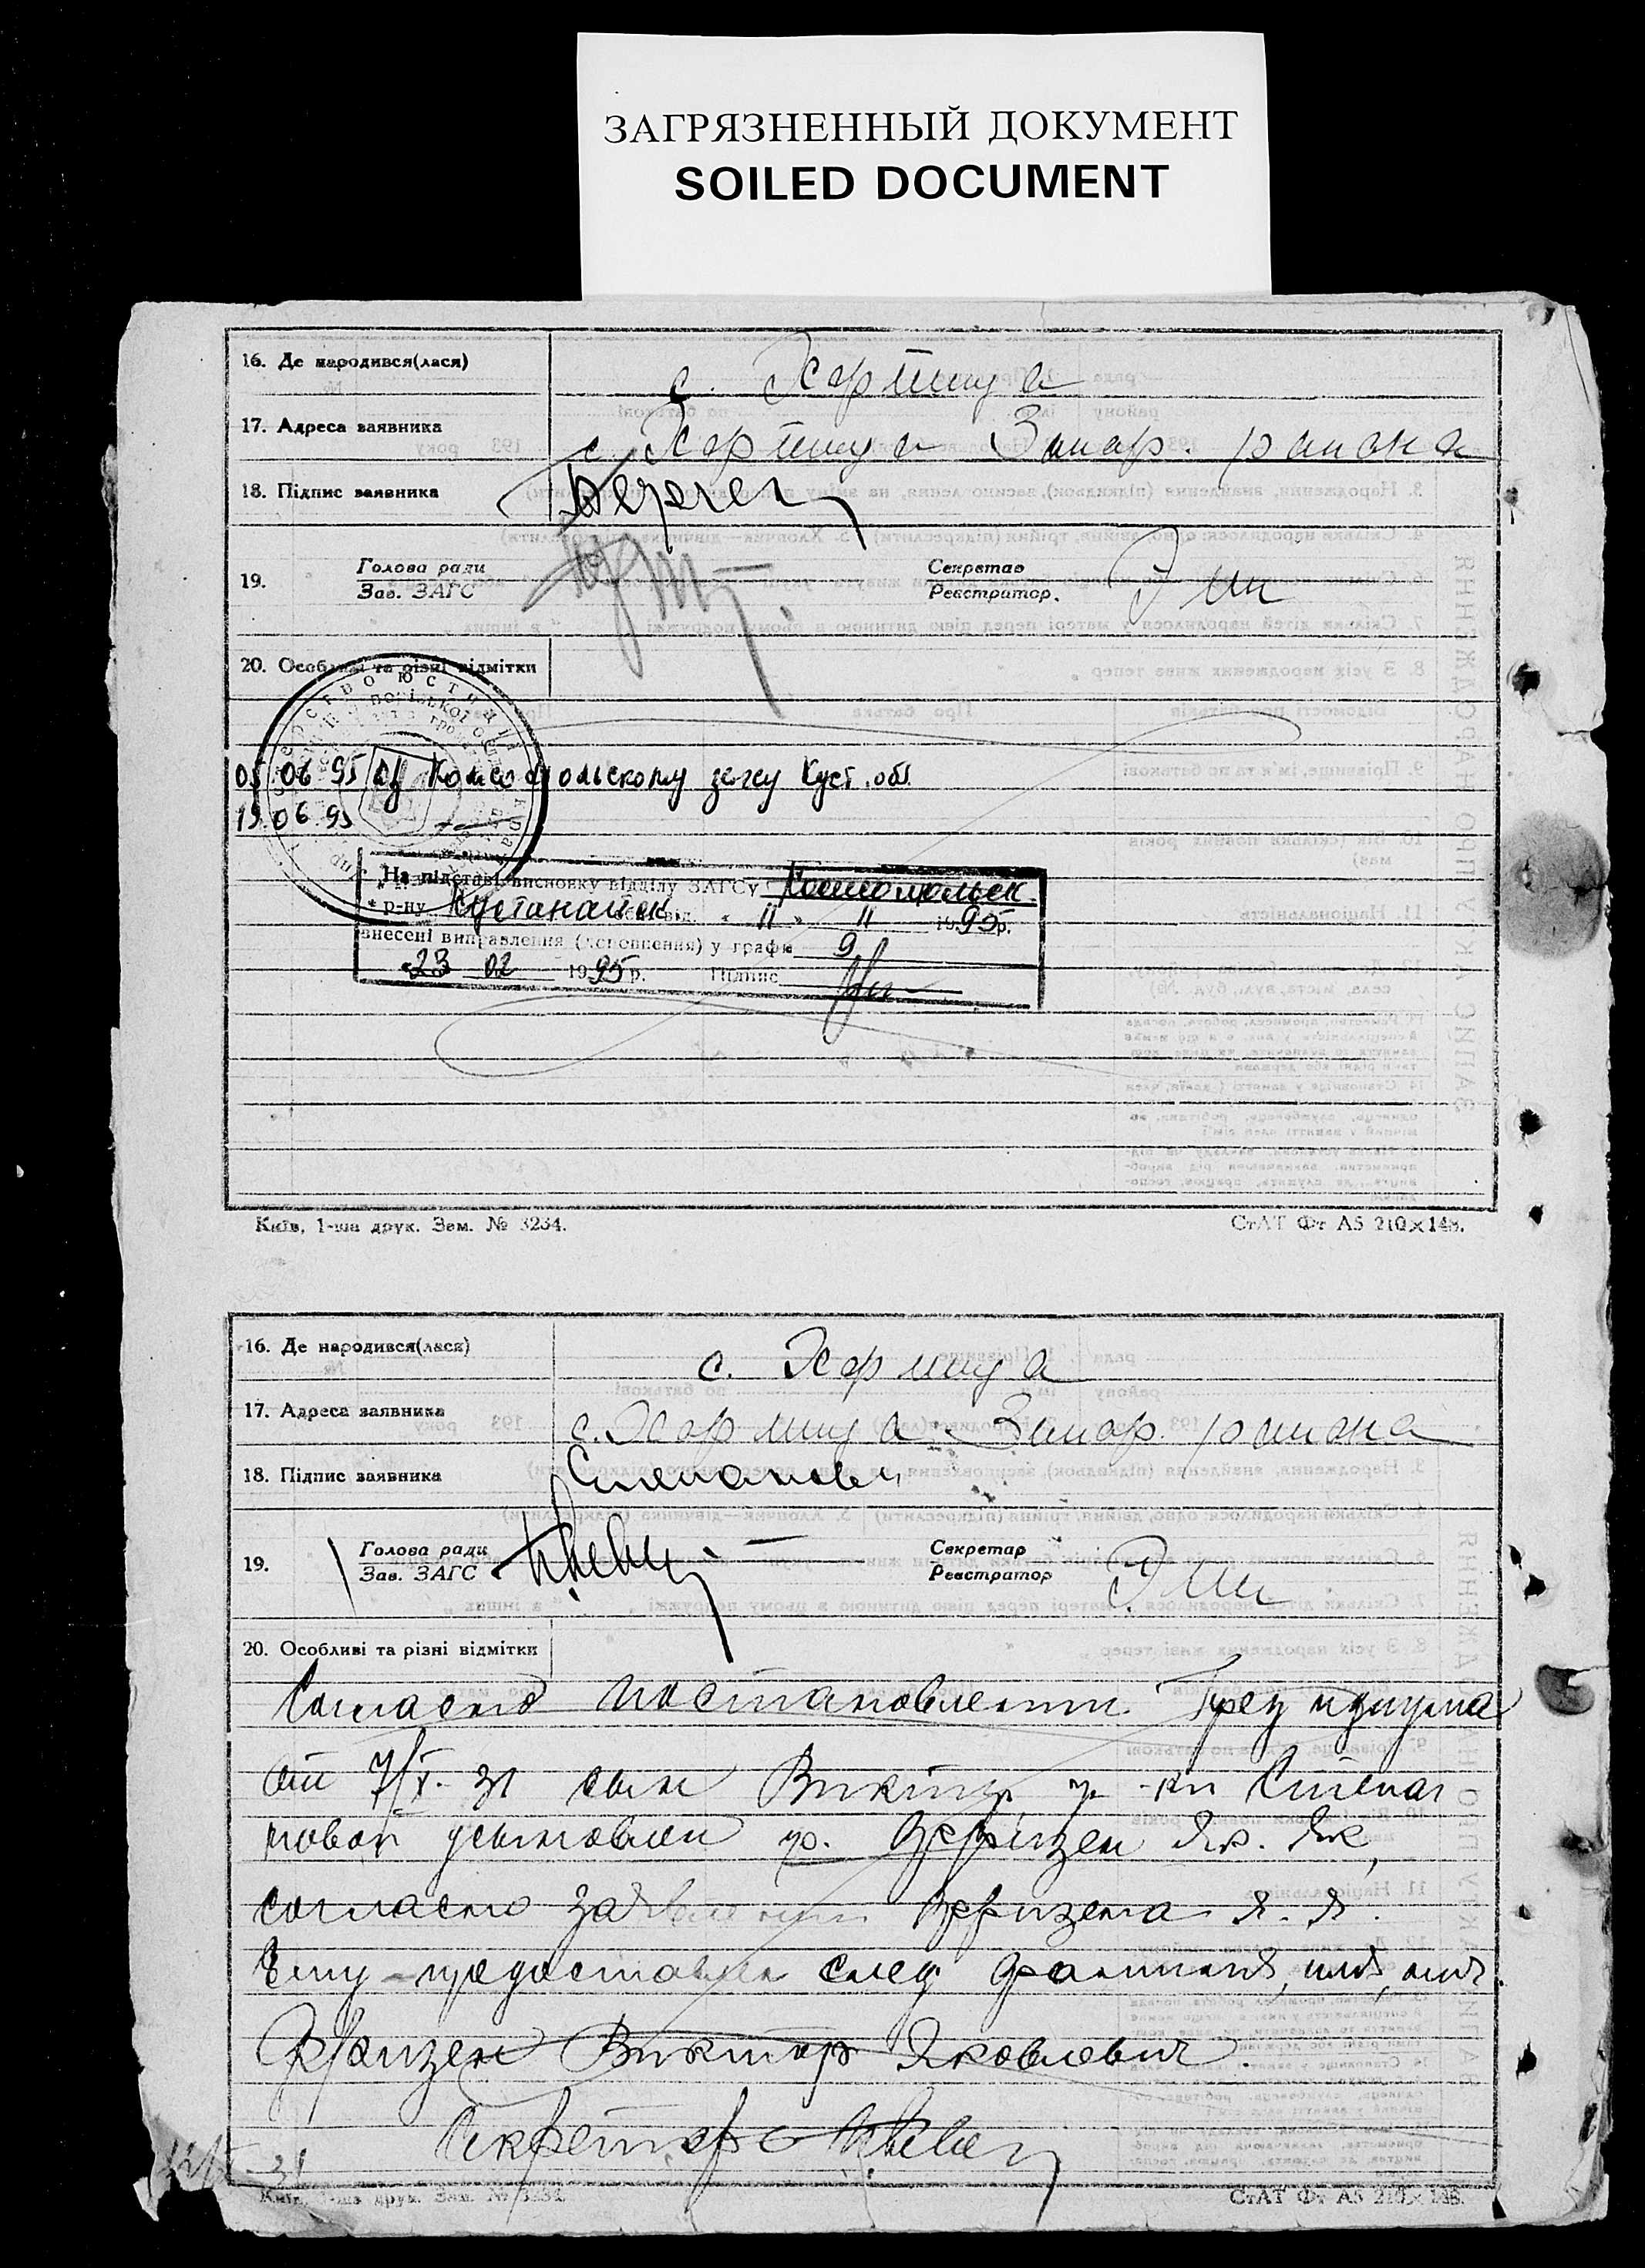 ЗАГРЯЗНЕННЫЙ ДОКУМЕНТ
SOILED DOCUMENT
16. Де народився(лася)
с. Хортица
17. Адреса заявника
с. Хортица Запор. района
18. Підпис заявника
19. Голова ради
Зав. ЗАГС
Секретар
Реєстратор.
20. Особливі та різні відмітки
05 06 95 Комсомольскому загсу Куст. обл.
19.06.95
На підставі висновку відділу ЗАГСу Комсомольск.
р-ну Кустанайск. обл. від. « 11 » 11 1995р.
внесені виправлення (доповнення) у графи 9
«23 02 1995р. Підпис
Київ, 1-ша друк. Зам. № 3234.
СтАТ Фт А5 210×148.
16. Де народився(лася)
с. Хортица
17. Адреса заявника
с. Хортица Запор. района
18. Підпис заявника
Степанова
19. Голова ради
Зав. ЗАГС
Секретар
Реєстратор
20. Особливі та різні відмітки
Согласно постановления Президиума
от 7/ 31 сын Виктор гр-ки Степа
новой усыновлен гр. Фризен Як. Як,
согласно заявления Фризена Я. Я.
Ему предоставлен след. фамилия, имя, отч.
Фризен Виктор Яковлевич.
Секретарь
31
Київ, 1-ша друк. Зам. № 3234.
СтАТ Фт А5 210×148.